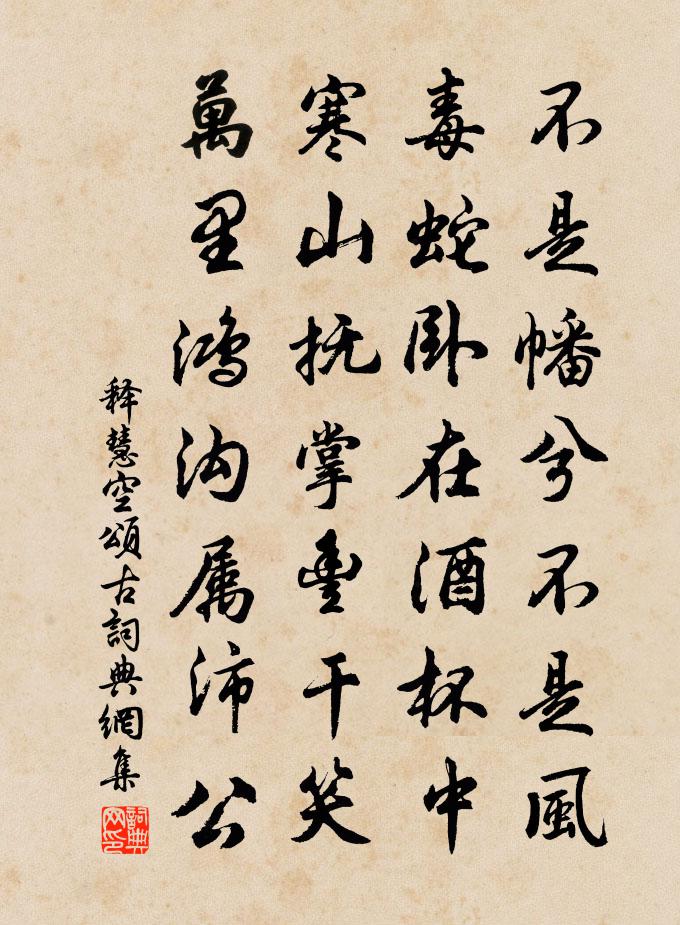 不是幡兮不是風
毒蛇卧在酒杯中
寒山抚掌豊干笑
萬里鸿沟属沛公
释慧空頌古詞典網集
詞典网印